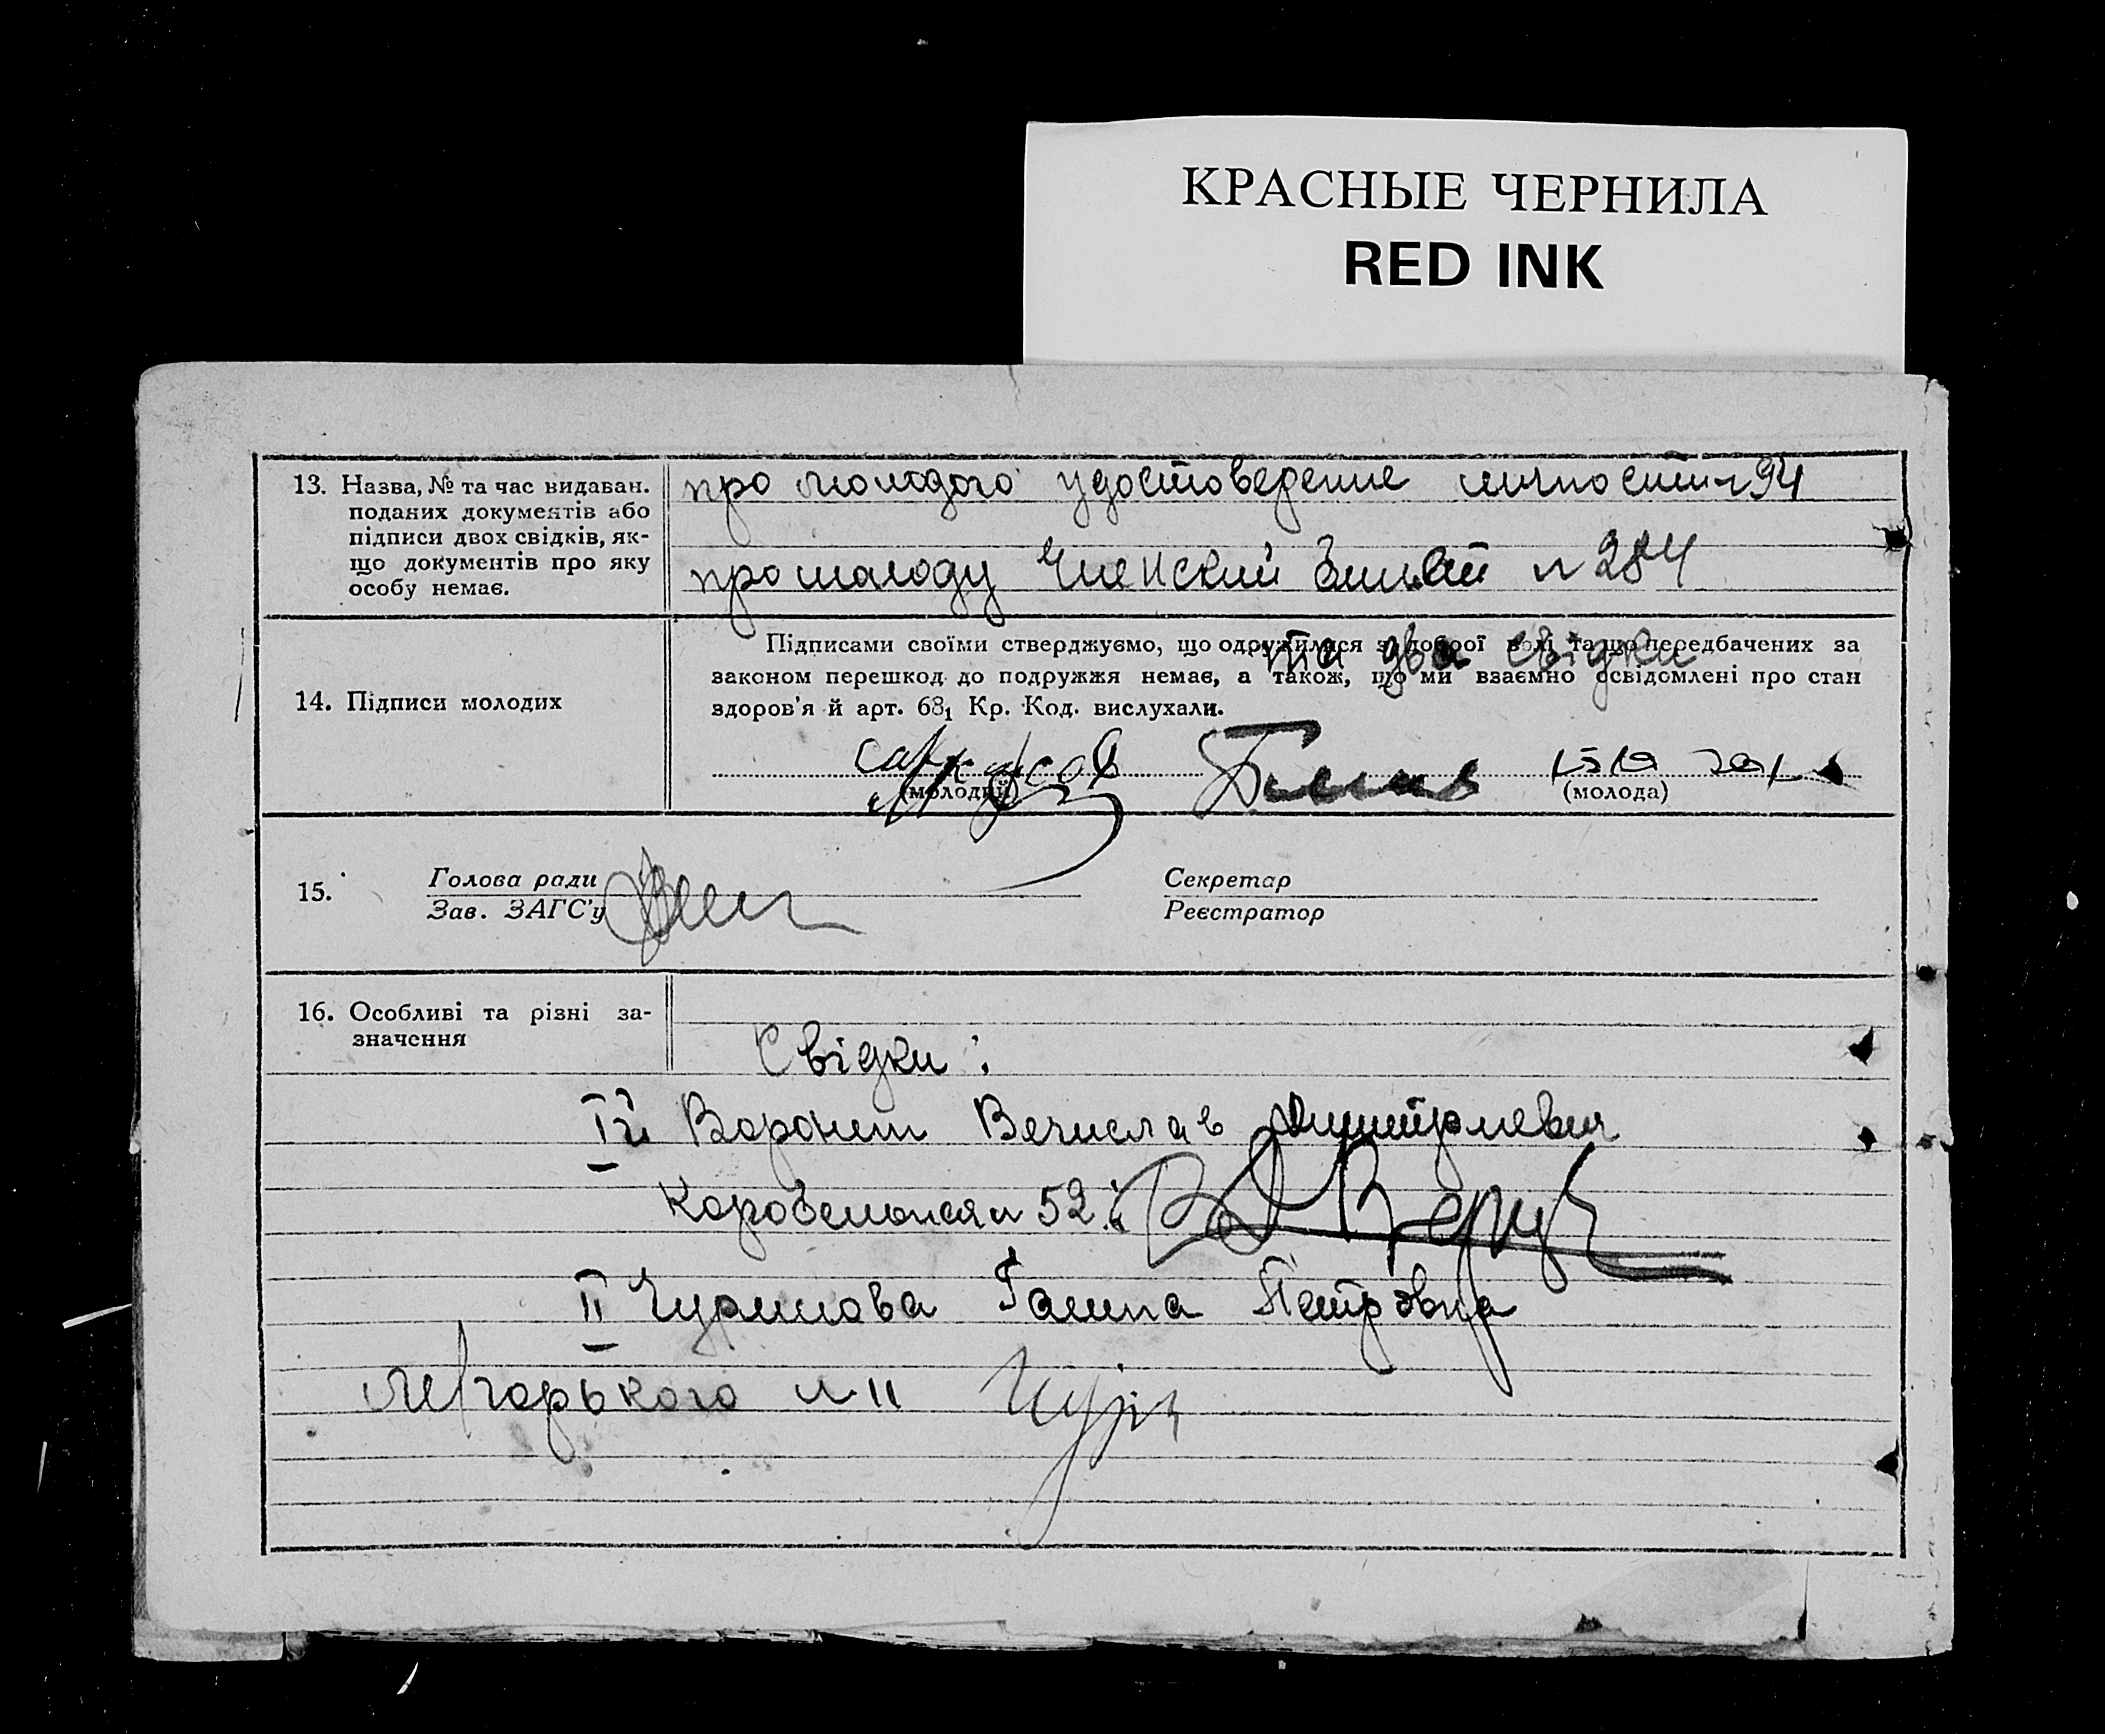 КРАСНЫЕ ЧЕРНИЛА
RED INK
13. Назва, № та час видаван.
поданих документів або
підписи двох свідків, як-
що документів про яку
особу немає.
про молодого удостоведение личности 94
про молоду Членский билет 284
та два свідки
14. Підписи молодих
Підписами своїми стверджуємо, що одружилися з доброї волі та що передбачених за
законом перешкод до подружжя немає, а також, що ми взаємно освідомлені про стан
здоров'я й арт. 68₁ Кр. Код. вислухали.
(молодий)
(молода)
15.
Голова ради
Зав. ЗАГС'у
Секретар
Реєстратор
16. Особливі та різні за-
значення
Свідки:
Вечислав
52
II Петровна
Горького 11